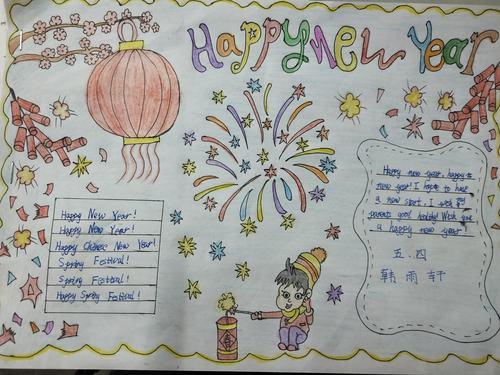 Happy new Year
Happy New Year!
Happy New Year!
Happy Chinese New Year!
Spring Festival!
Spring Festival!
Happy Spring Festival!
Happy new year, happy
new year! I hope to have
a new start, I wish
parents good
a happy new year
五.四
韩雨轩